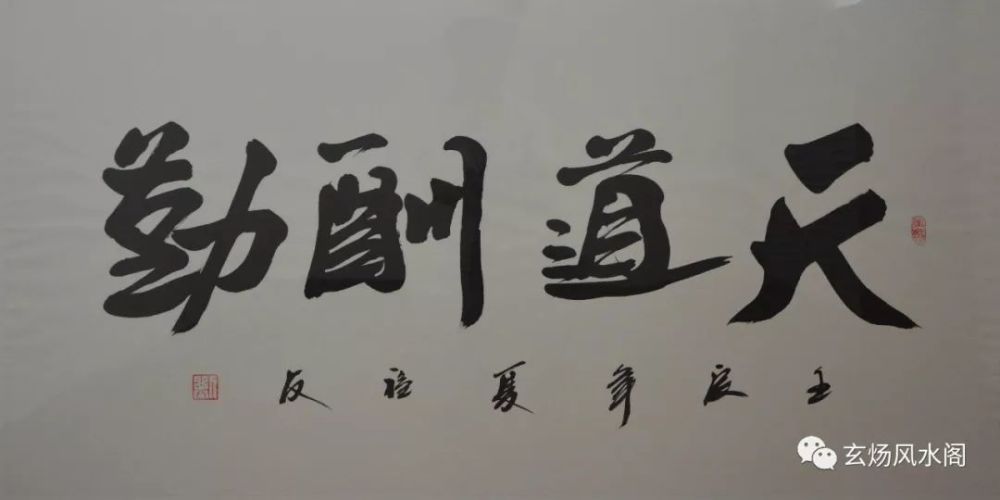 天道酬勤
壬辰年夏
玄炀风水阁